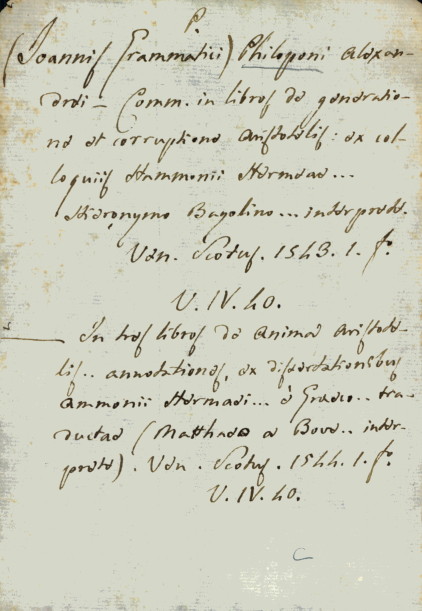 P.
(Joannis Grammatici) Philoponi Alexan-
drei – Comm. in libros de generatio-
ne et corruptione Aristotelis: ex col-
loquiis Hammonii Hermeae...
Hieronymo Bagolino... interprete.
Ven. Scotus. 1543. 1. fo.
V. IV. 40.
In tres libros de Anima Aristote-
lis.. annotationes, ex dissertationibus
Ammonii Hermaei... è Graeco.. tra-
ductae (Matthaeo a Bove.. inter-
prete). Ven. Scotus. 1544. 1. fo.
V. IV. 40.
C